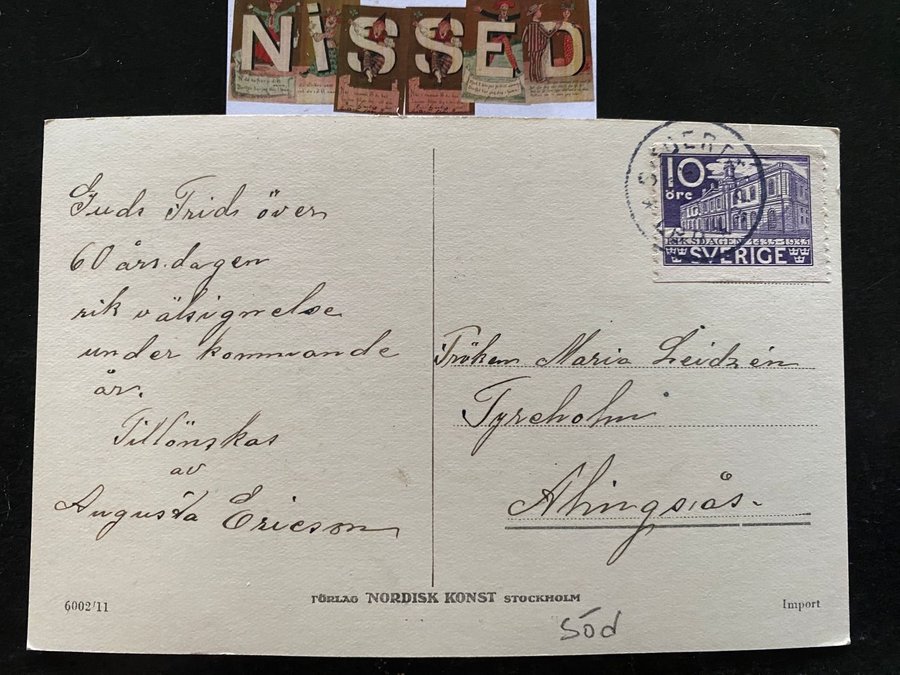 NISSED
Guds Frids över
60 års.dagen
rik välsignelse
under kommande
år.
Tillönskas
av
Augusta Ericson
10
öre
RIKSDAGEN 1435-1935
SVERIGE
Fröken Maria Leidzén
Tyreholm
Alingsås.
6002/11
FÖRLAG NORDISK KONST STOCKHOLM
Import
Söd